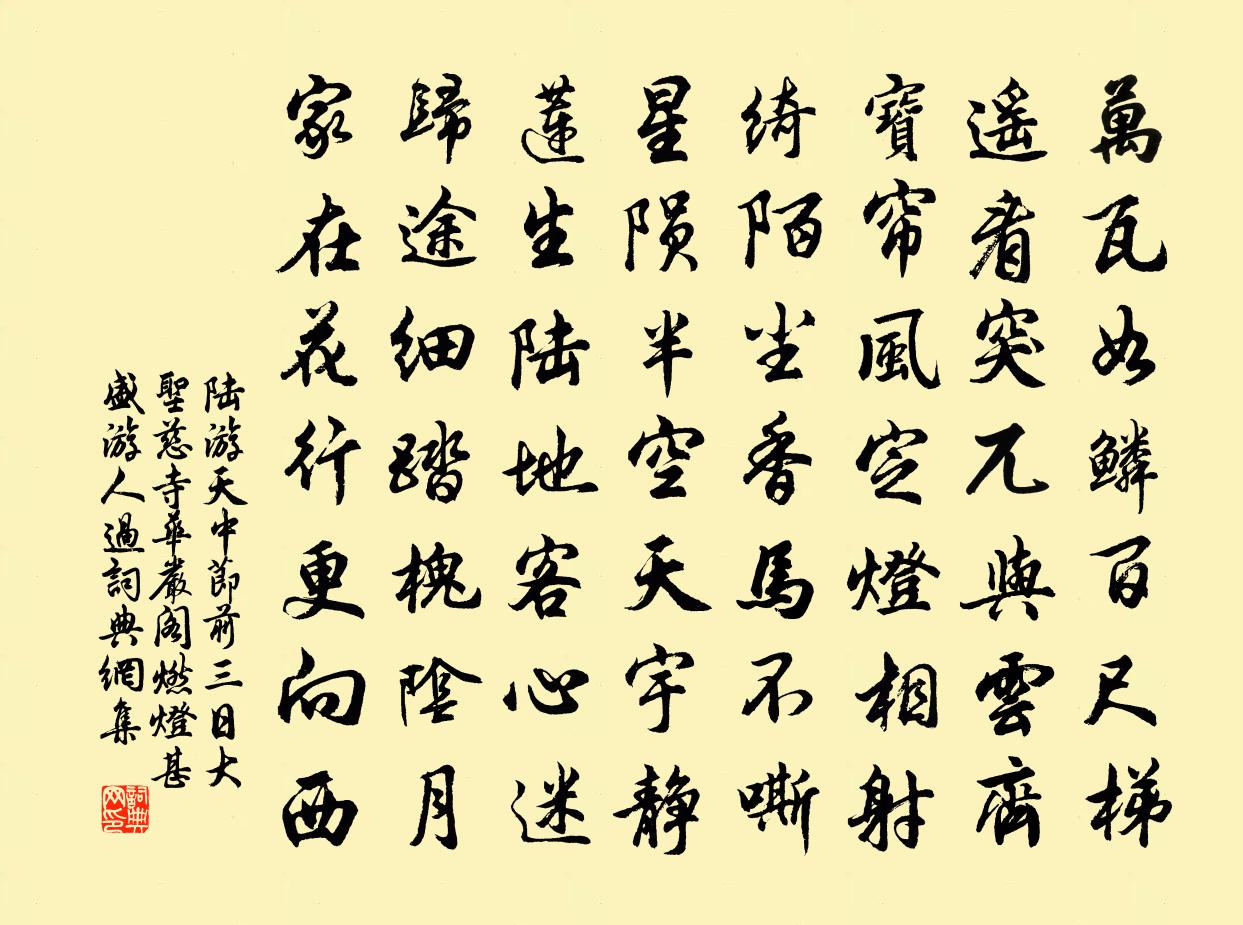 萬瓦如鱗百尺梯
遥看突兀與雲齊
寶帘風定燈相射
綺陌尘香馬不嘶
星陨半空天宇静
蓮生陆地客心迷
歸途细踏槐陰月
家在花行更向西
陆游天中節前三日大
聖慈寺華嚴阁燃燈甚
盛游人過詞典網集
詞典网印